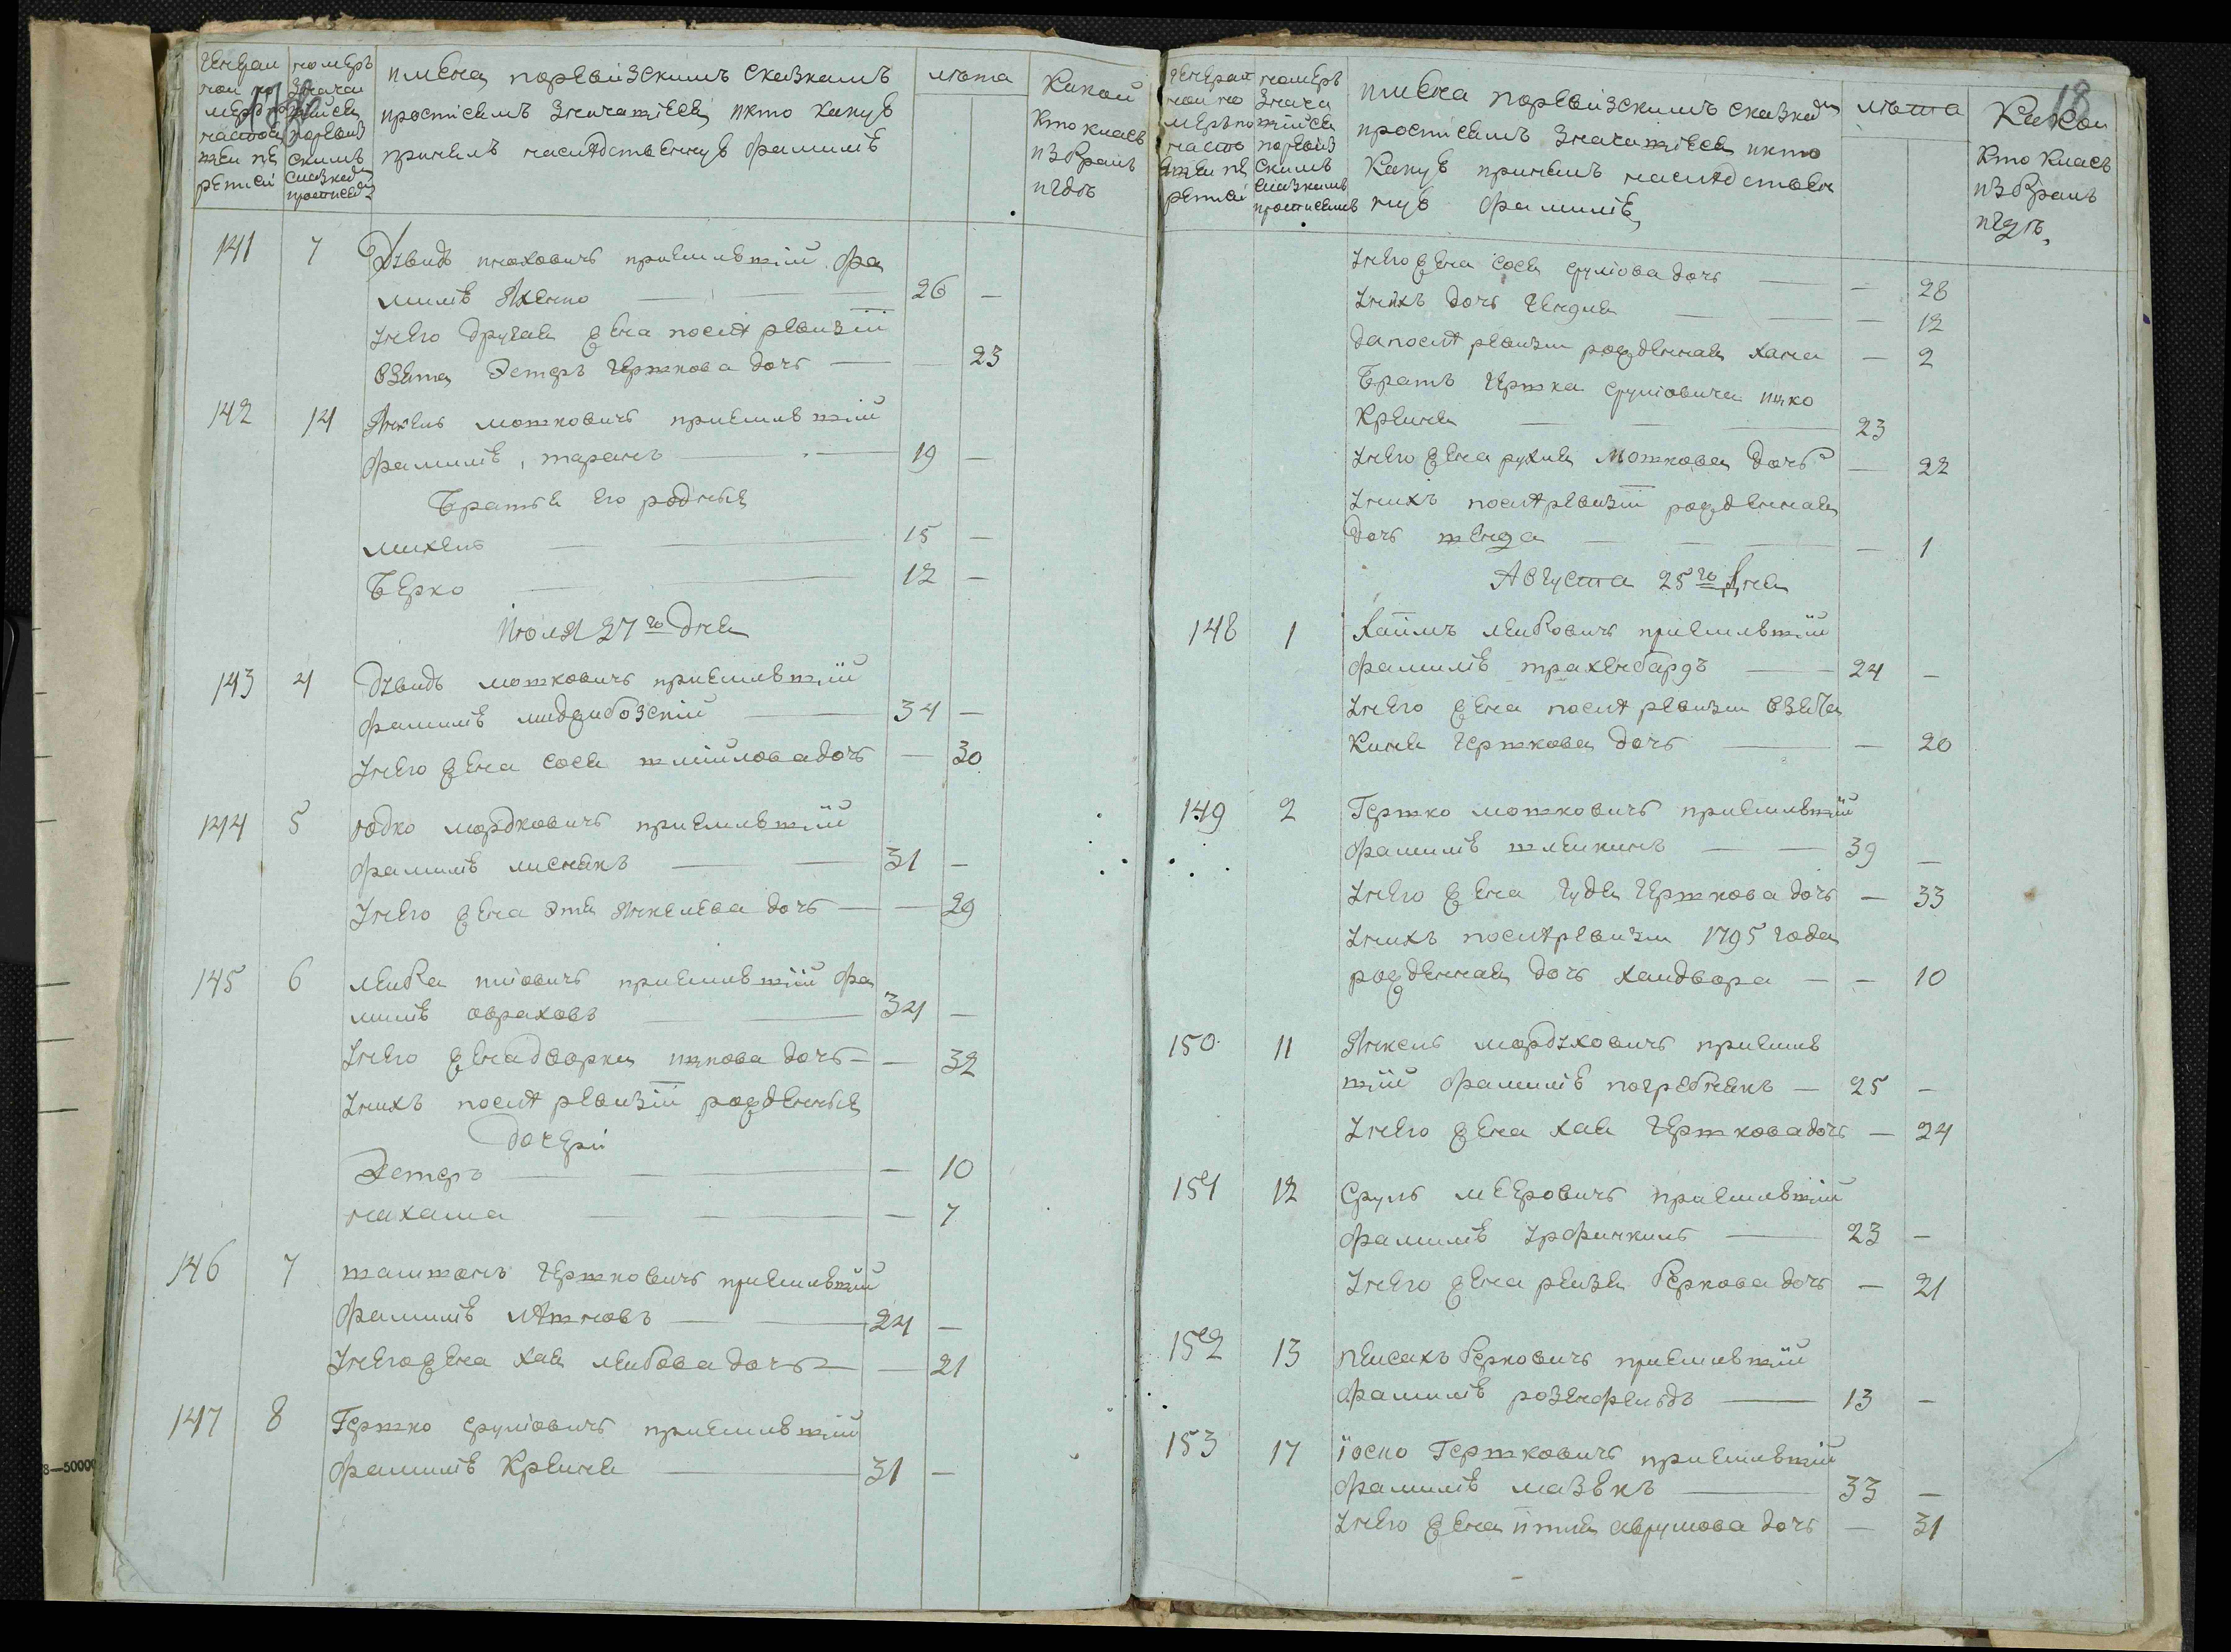 номеръ
имена поревизскимъ сказкамъ
прописамъ значатіеся икто какую
принялъ наслѣдственную фамилію
лѣта
Какой
кто класъ
избралъ
игдѣ
141 7 Дзвидъ приемлевшій фа
милію Яхенко — 26 —
Унего другая жена послѣ ревизіи
взята Эстеръ гершкова дочь — 23
142 14 Янкель мошковичъ приемлевшій
фамилію, таранъ — 19 —
Братья его родные
михель — 15 —
Берко — 12 —
Июля 27го дня
143 4 Дзвидъ мошковичъ приемлевшій
фамилію миджибозскій — 34 —
Унего жена сося шмііилова дочь — 30
144 5 юдко мордковичъ приемлевшій
фамилію лиснякъ — 31 —
Унего жена этя янкелева дочь — 29
145 6 лейба приемлевшій фа
милію авраховъ — 34 —
Унего жена дворкя дочь — 32
Унихъ послѣ ревизіи рожденные
дочери
Эстеръ — 10
нахама — 7
146 7 гершковичъ приемлевшій
фамилію — 24 —
Унего жена хая лейбова дочь — 21
147 8 Гершко сруліовичъ приемлевшій
фамилію Креиня — 31 —
18
имена поревизскимъ сказкамъ
прописамъ значатіеся икто
Какую принялъ наслѣдствен
ную фамилію
лѣта
Какой
Кто класъ
избралъ
игдѣ
Унего жена сося срулiова дочь — 28
Унихъ дочь гендля — 12
дапослѣ ревизіи рожденная хана — 2
Братъ гершка сруліовича ицко
Креиня — 23
Унего жена рухля мошкова дочь — 22
Унихъ послѣ ревизіи рожденная
дочь шендя — 1
Августа 25го дня
148 1 Хаимъ лейбовичъ приемлевшій
фамилію трахенбардъ — 24 —
Унего жена послѣ ревизіи взята
Киня гершкова дочь — 20
149 2 Гершко мошковичъ приемлевшій
фамилію шлеикинъ — 39 —
Унего жена гудя гершкова дочь — 33
Унихъ послѣ ревизіи 1795 года
рожденная дочь хаидвора — — 10
150 11 Янкель мордзховичъ приемлев
шій фамилію погребнякъ — 25 —
Унего жена хая гершкова дочь — 24
151 12 Сруль меѣровичъ приемлевшій
фамилію — 23 —
Унего жена реизя беркова дочь — 21
152 13 пеисахъ берковичъ приемлевшій
фамилію розенфельдъ — 13 —
153 17 іоско Гершковичъ приемлевшій
фамилію мазѣкъ — 33 —
Унего жена аврумова дочь — 31